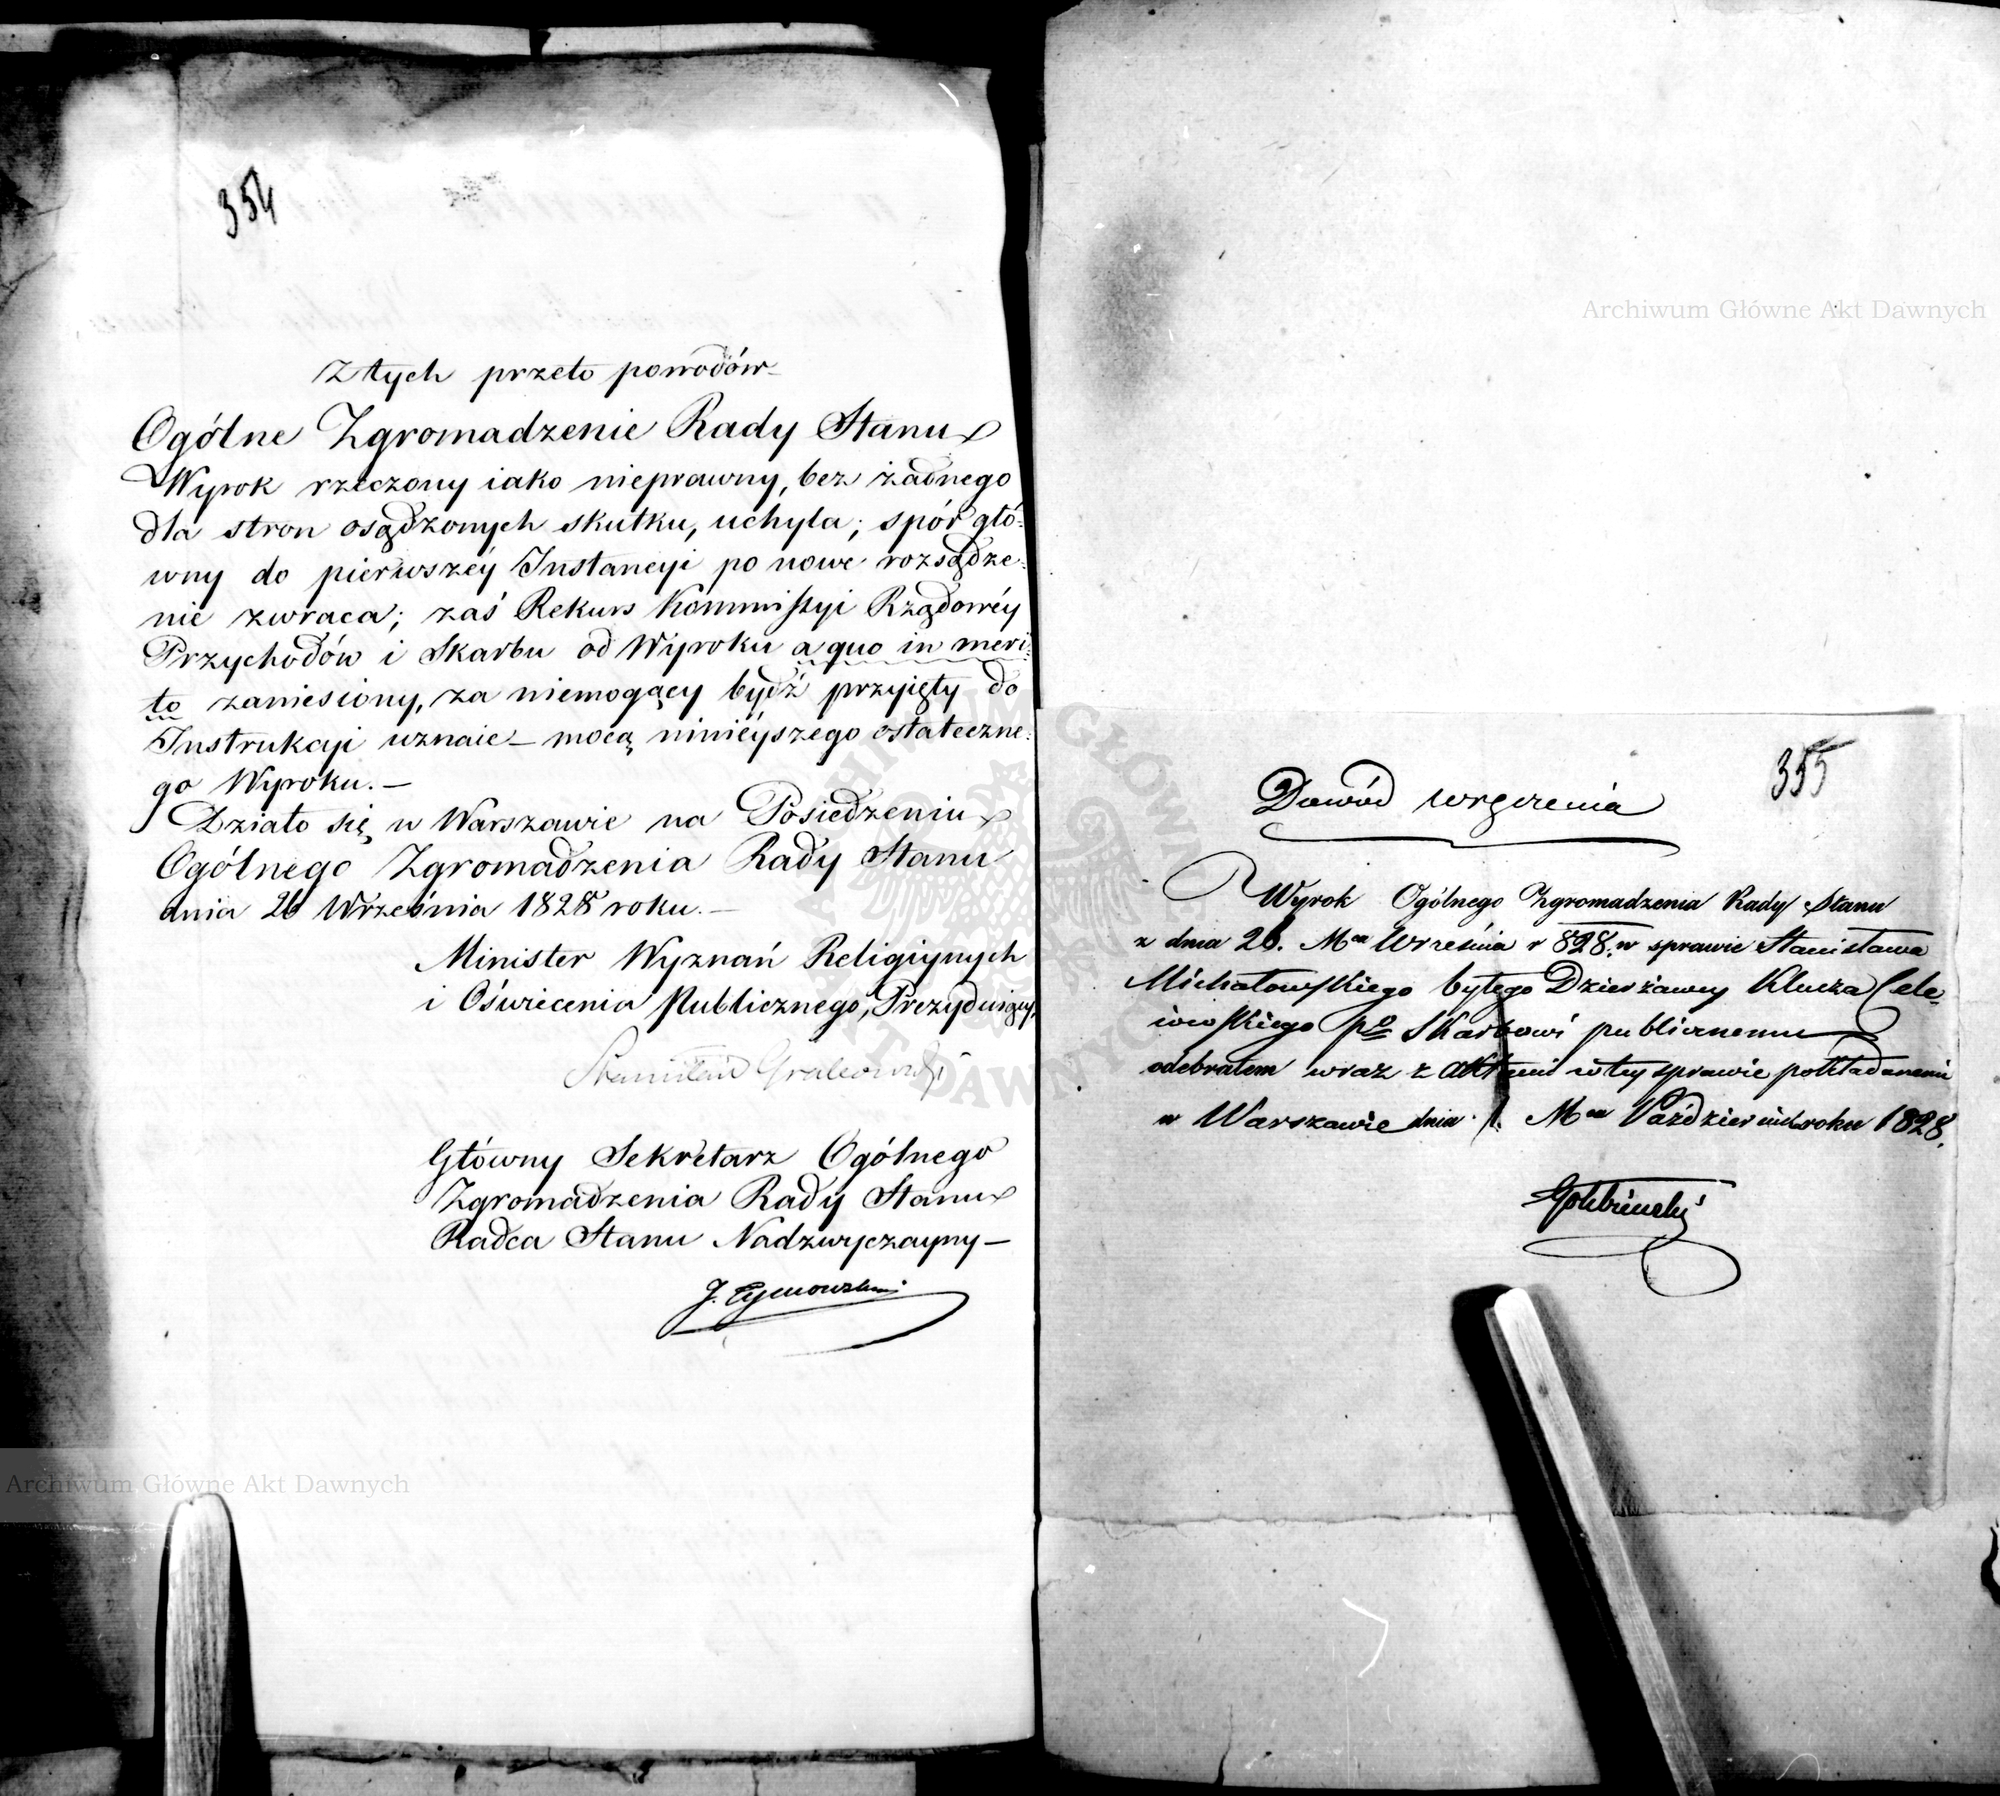 354
Z tych przeto powodów
Ogólne Zgromadzenie Rady Stanu
Wyrok rzeczony iako nieprawny, bez żadnego
dla stron osądzonych skutku, uchyla; spór głó-
wny do pierwszéy Instancyi po nowe rozsądze-
nie zwraca; zaś Rekurs Kommissyi Rządowéy
Przychodów i Skarbu od Wyroku a quo in meri-
to zaniesiony, za niemogący bydź przyięty do
Instrukcyi uznaie – mocą ninieyszego ostateczne-
go Wyroku. –
Działo się w Warszawie na Posiedzeniu
Ogólnego Zgromadzenia Rady Stanu
dnia 26 Września 1828 roku. –
Minister Wyznań Religiynych
i Oświecenia Publicznego, Prezyduiący,
Stanisław Grabowski
Główny Sekretarz Ogólnego
Zgromadzenia Rady Stanu
Radca Stanu Nadzwyczayny –
J. Tymowski
Archiwum Główne Akt Dawnych
Archiwum Główne Akt Dawnych
355
Dowód wręczenia
Wyrok Ogólnego Zgromadzenia Rady Stanu
z dnia 26. Mca Września r 828. w sprawie Stanisława
Michałowskiego byłego Dzierżawcy Klucza Cele-
iowskiego pko Skarbowi publicznemu
odebrałem wraz z aktami w tey sprawie pokładanemi
w Warszawie dnia 1. Mca Październ. roku 1828.
ARCHIWUM GŁÓWNE AKT DAWNYCH